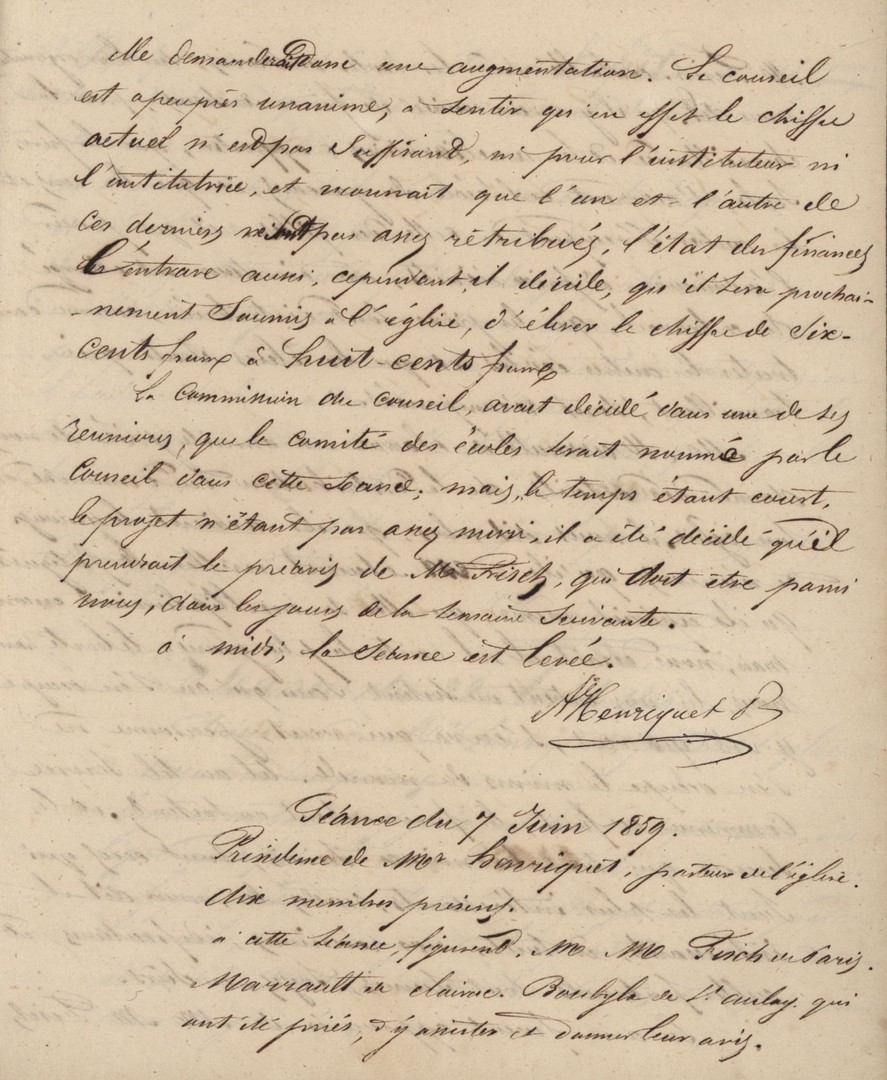 Elle demanderait donc une augmentation. Le conseil
est apeuprès unanime, a sentir qu'en effet le chiffre
actuel n'est pas Suffisant, ni pour l'instituteur ni
l'institutrice, et reconnait que l'un et l'autre de
ces derniers ne sont pas assez retribués, l'état des finances
l'entrave aussi, cependant, il décide, qu'il sera prochai-
-nement Soumis à l'église, d'élever le chiffre de Six-
cents francs à huit-cents francs
La Commission du conseil, avait décidé dans une de ses
reunions, que le comité des écoles serait nommé par le
Conseil dans cette séance; mais, le temps étant court,
le projet n'étant pas assez muri, il a été décidé qu'il
prendrait le préavis de Mr Fisch, qui doit etre parmi
nous, dans les jours de la semaine suivante.
à midi, la Séance est levée.
Henriquet
Séance du 7 Juin 1859.
Présidence de Mr henriquet, pasteur de l'église.
dix membres présens.
à cette séance, figurent, M M Fisch de Paris.
Marrault de clairac. de St aulay. qui
ont été priés, d'y assister et donner leur avis.